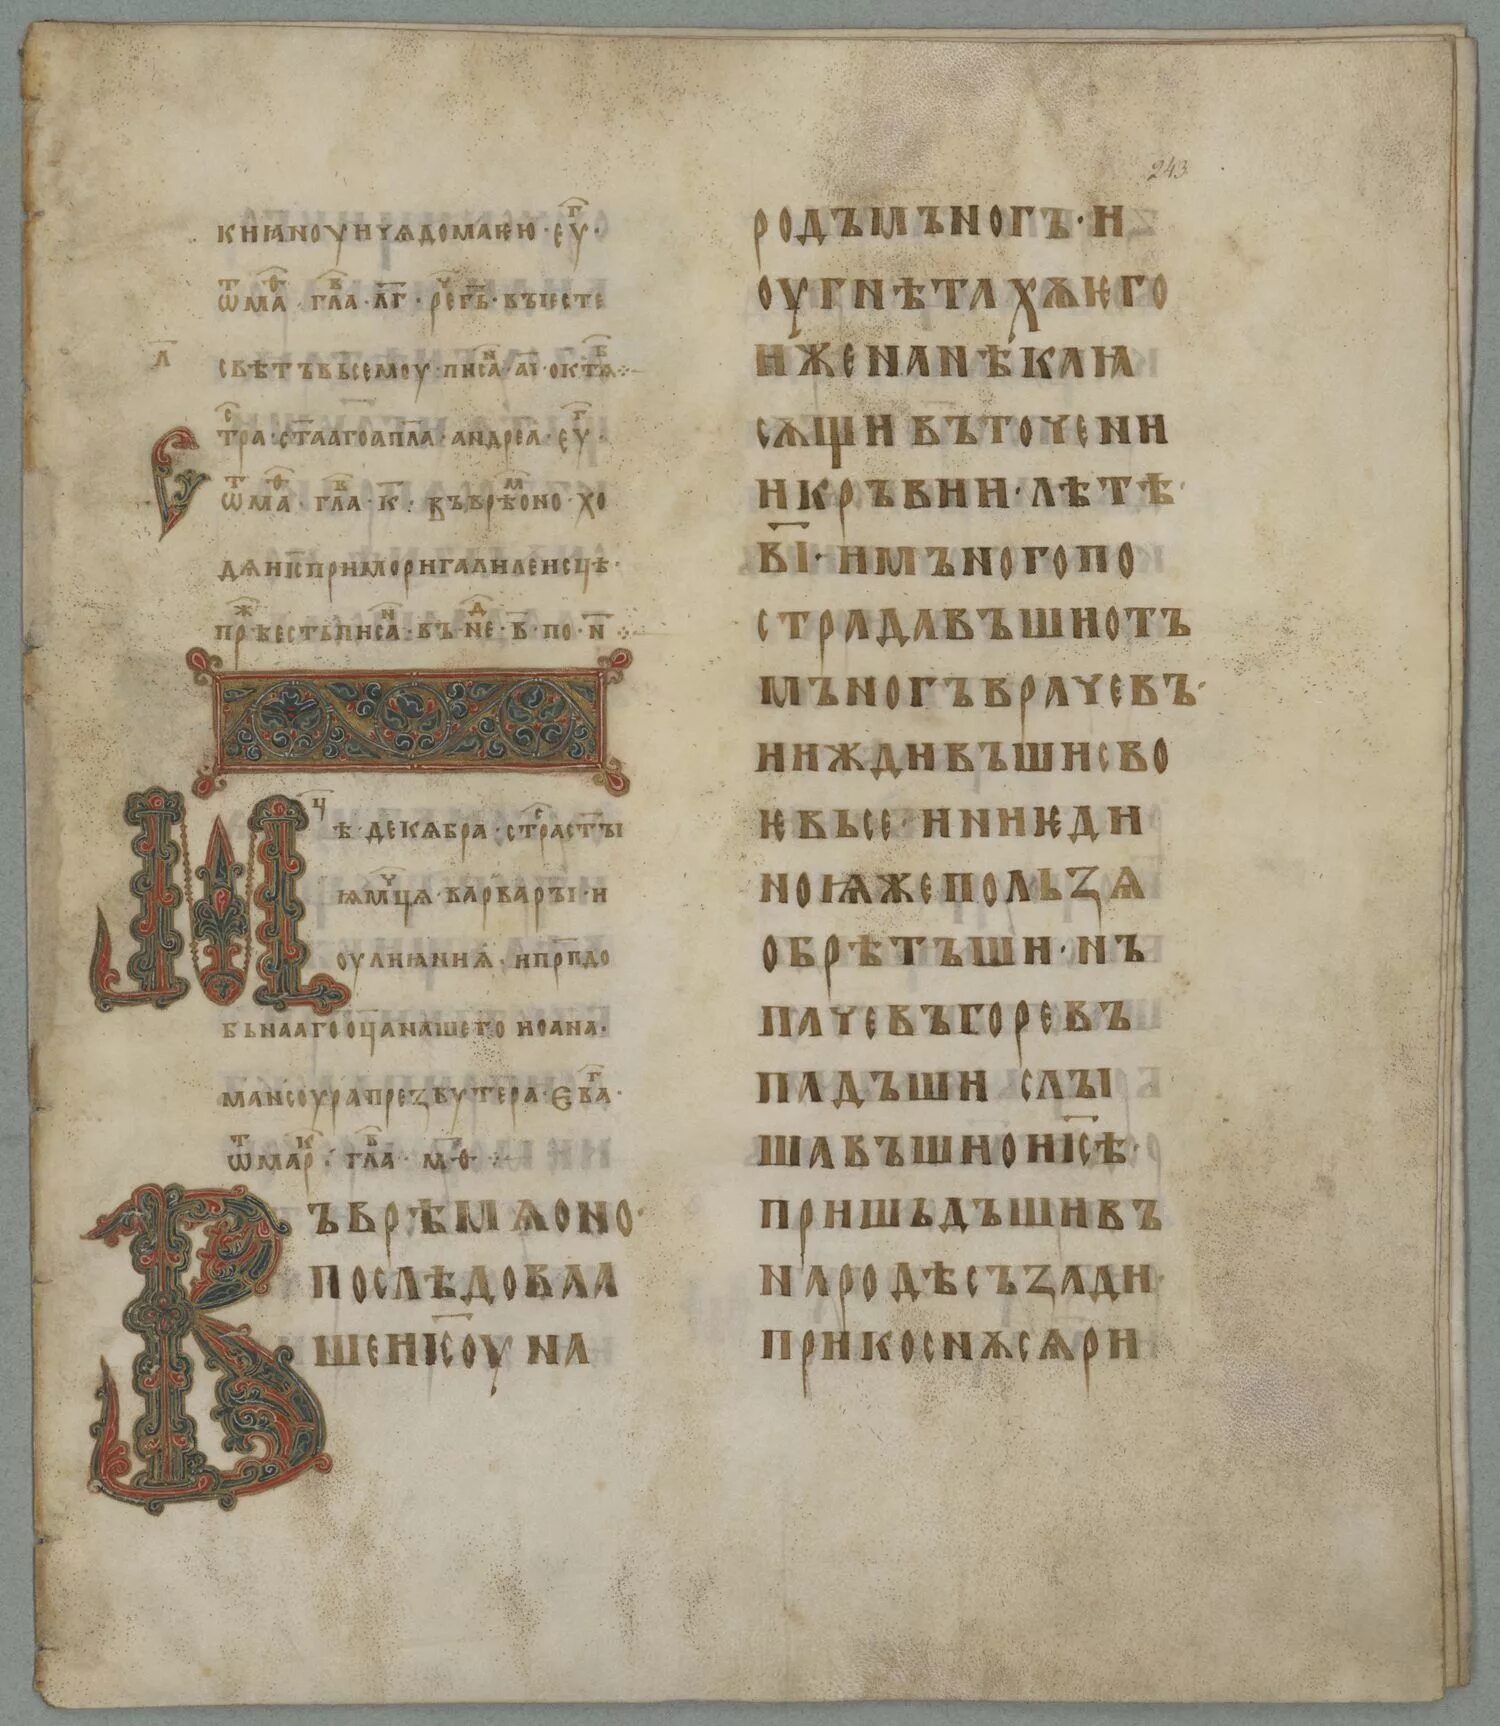 243
КНꙖНОУНЧѦДОМАѤЮ · ЕУГ ·
ѾМАТФ · ГЛАВ · ЛГ · РЕЧГЪ · ВЪІЕСТЕ
Л
СВѢТЪВЬСЕМОУ · ПИСАН · АІ · ОКТѦБ
СТРА · СТААГОАПЛА · АНДРЕА · ЕУГ ·
ѾМАТФ · ГЛАВ · К · ВЪВРѢМОНО · ХО
ДѦИІСПРИМОРИГАЛИЛЕИСЦѢ ·
ПРѢЖЕСТЬПИСАН · ВЪ · НЕД · В · ПО · Н
МЦѢ · ДЕКѦБРА · СТРАСТЪІ
ꙖМЧЦѦ · ВАРВАРЪІ · И
ОУЛИꙖНИѦ · ИПРПДО
БЬНААГООЦАНАШЕГО ИОАНА ·
МАНСОУРАПРЕЗВУТЕРА · ЄВАГ ·
ѾМАРК · ГЛАВ · МѲ
ВЪВРѢМѦОНО ·
ПОСЛѢДОВАА
ШЕИІСОУ НА
РОДЪМЪНОГЪ · И
ОУГНѢТАХѪѤГО
ИЖЕНАНѢКАꙖ
СѪЩИВЪТОЧЕНИ
ИКРЪВИИ · ЛѢТѢ ·
ВІ · ИМЪНОГОПО
СТРАДАВЪШИОТЪ
МЪНОГЪВРАЧЕВЪ ·
ИИЖДИВЪШИСВО
ѤВЬСЕ · ИНИѤДИ
НОꙖѨЖЕПОЛЬЗѦ
ОБРѢТЪШИ · НЪ
ПАЧЕВЪГОРЕВЪ
ПАДЪШИ СЛЪІ
ШАВЪШИОИІСѢ ·
ПРИШЬДЪШИВЪ
НАРОДѢСЪЗАДИ ·
ПРИКОСНѪСѦРИ